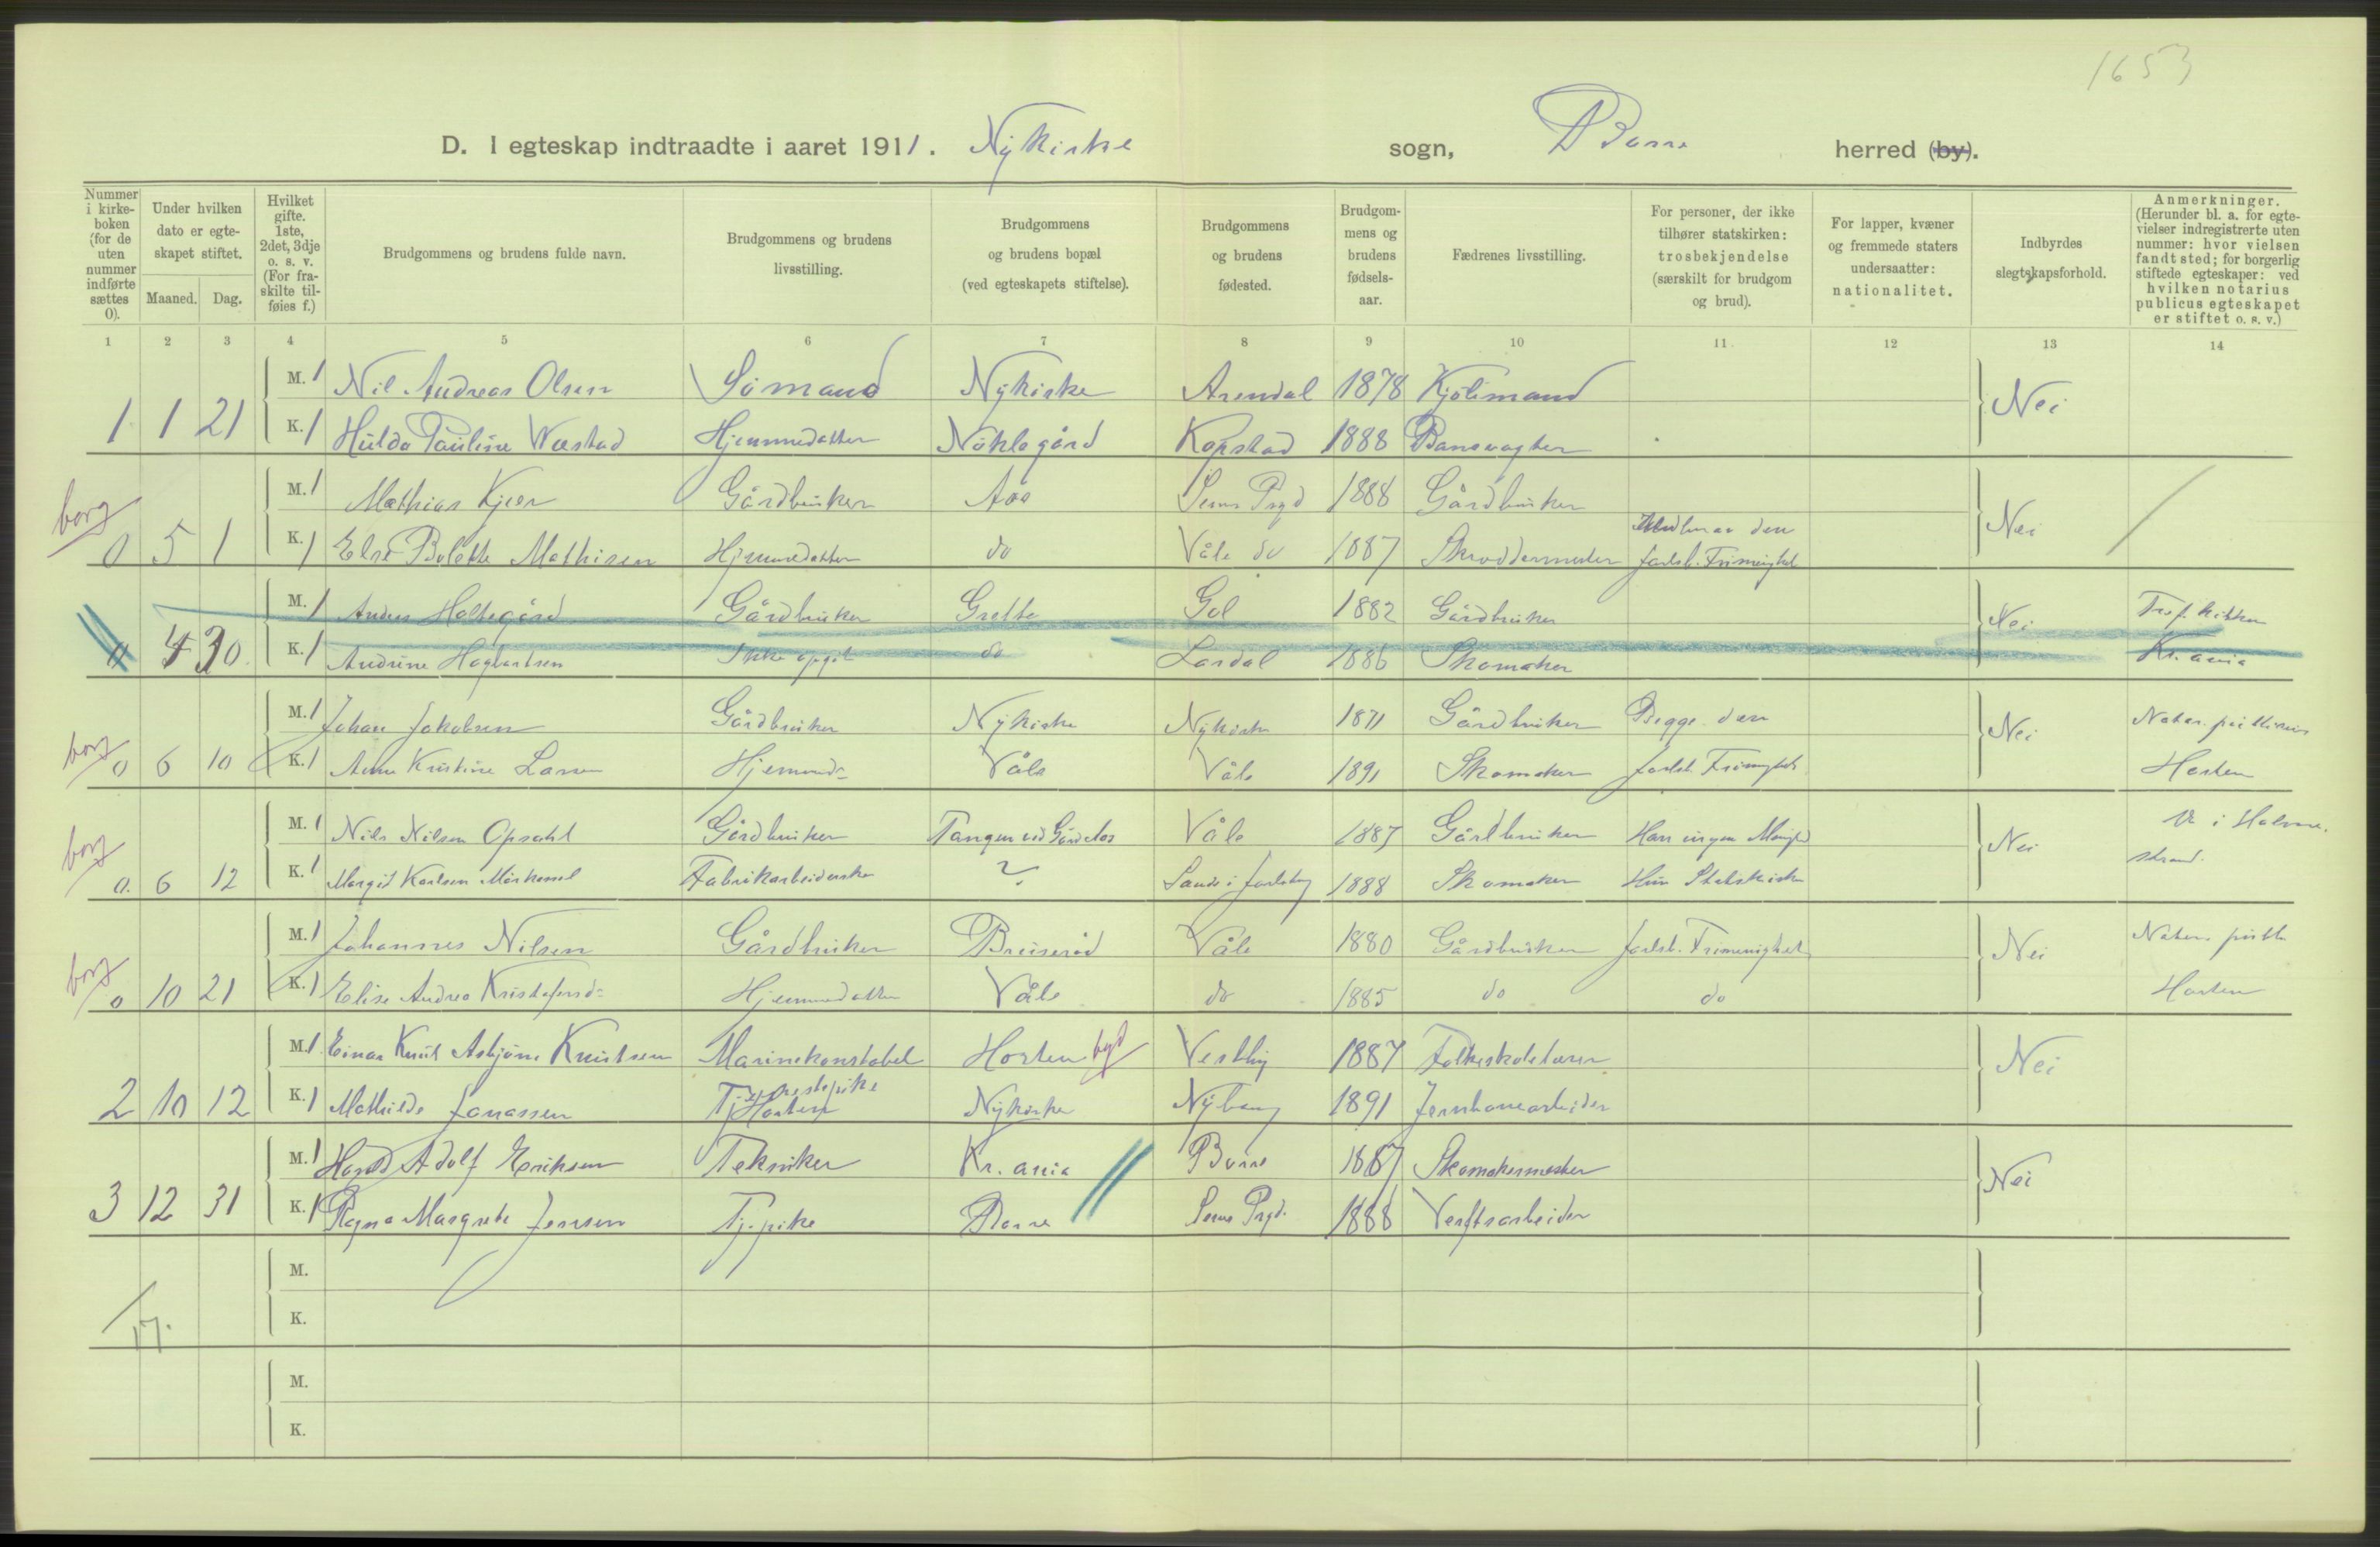 1653
D. I egteskap indtraadte i aaret 1911. Nykirke sogn, Borre herred (by).
Nummer i kirkeboken (for de uten nummer indførte sættes 0).
Under hvilken dato er egteskapet stiftet.
Maaned. Dag.
Hvilket gifte. 1ste, 2det, 3dje o. s. v. (For fraskilte tilføies f.)
Brudgommens og brudens fulde navn.
Brudgommens og brudens livsstilling.
Brudgommens og brudens bopæl (ved egteskapets stiftelse).
Brudgommens og brudens fødested.
Brudgommens og brudens fødselsaar.
Fædrenes livsstilling.
For personer, der ikke tilhører statskirken: trosbekjendelse (særskilt for brudgom og brud).
For lapper, kvæner og fremmede staters undersaatter: nationalitet.
Indbyrdes slegtskapsforhold.
Anmerkninger. (Herunder bl. a. for egtevielser indregistrerte uten nummer: hvor vielsen fandt sted; for borgerlig stiftede egteskaper: ved hvilken notarius publicus egteskapet er stiftet o. s. v.)
1 2 3 4 5 6 7 8 9 10 11. 12 13 14
M. 1 Nil Andreas Olsen Sømand Nykirke Arendal 1878 Kjølimand
1 1 21 K. 1 Hulda Pauline Wæstad Hjemmedatter Nøklegård Kopstad 1888 Banevagter Nei
M. 1 Mathias Kjær Gårdbruker Aas Sems Prgd 1888 Gårdbruker
borg 0 5 1 K. 1 Else Bolette Mathisen Hjemmedatter do Våle do 1887 Skreddermester Jarlsb. Frimenighet Nei
M. 1 Anders Holtegård Gårdbruker Grette Gol 1882 Gårdbruker Nei
0 4 30 K. 1 Andrine Hagbartsen Ikke opgit do Lardal 1886 Skomaker Kr.ania
M. 1 Johan Jakobsen Gårdbruker Nykirke Nykirke 1871 Gårdbruker Begge den Nei
borg 0 6 10 K. 1 Anna Kristine Larsen Hjemmed. Våle Våle 1891 Skomaker Jarlsb. Frimenighet Horten
M. 1 Nils Nilsen Opsahl Gårdbruker Tangen ved Gårdelos Våle 1887 Gårdbruker Han ingen Menighed Nei i Holmestrand.
borg 0. 6 12 K. 1 Margit Karlsen Mørkassel Fabrikarbeiderske ? Sande i Jarlsberg 1888 Skomaker Hun Statskirke
M. 1 Johannes Nilsen Gårdbruker Breiserød Våle 1880 Gårdbruker Jarlsb. Frimenighet Nei
borg 0 10 21 K. 1 Elise Andrea Kristofersd. Hjemmedatter Våle do 1885 do do Horten
M. 1 Einar Knut Asbjørn Knutsen Marinekonstabel Horten byd Vestby 1887 Folkeskolelærer Nei
2 10 12 K. 1 Mathilde Jonassen Tjenestepike Nykirke Nybang 1891 Jernbanearbeider
M. 1 Harald Adolf Eriksen Tekniker Kr.ania Borre 1887 Skomakermester Nei
3 12 31 K. 1 Ragna Margrete Jensen Tj.pike Borre Sems Prgd. 1888 Verftsarbeider
M.
K.
17.
M.
K.